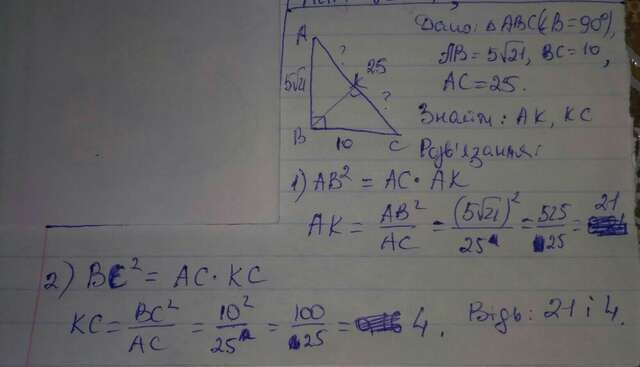 Дано: △ABC(∠B=90°),
AB=5√21, BC=10,
AC=25.
Знайти: AK, KC
Розв'язання:
A
?
25
5√21
K
?
B
10
C
1) AB² = AC · AK
AK = AB²/AC = (5√21)²/25 = 525/25 = 21
2) BC² = AC · KC
KC = BC²/AC = 10²/25 = 100/25 = 4.
Відь: 21 і 4.